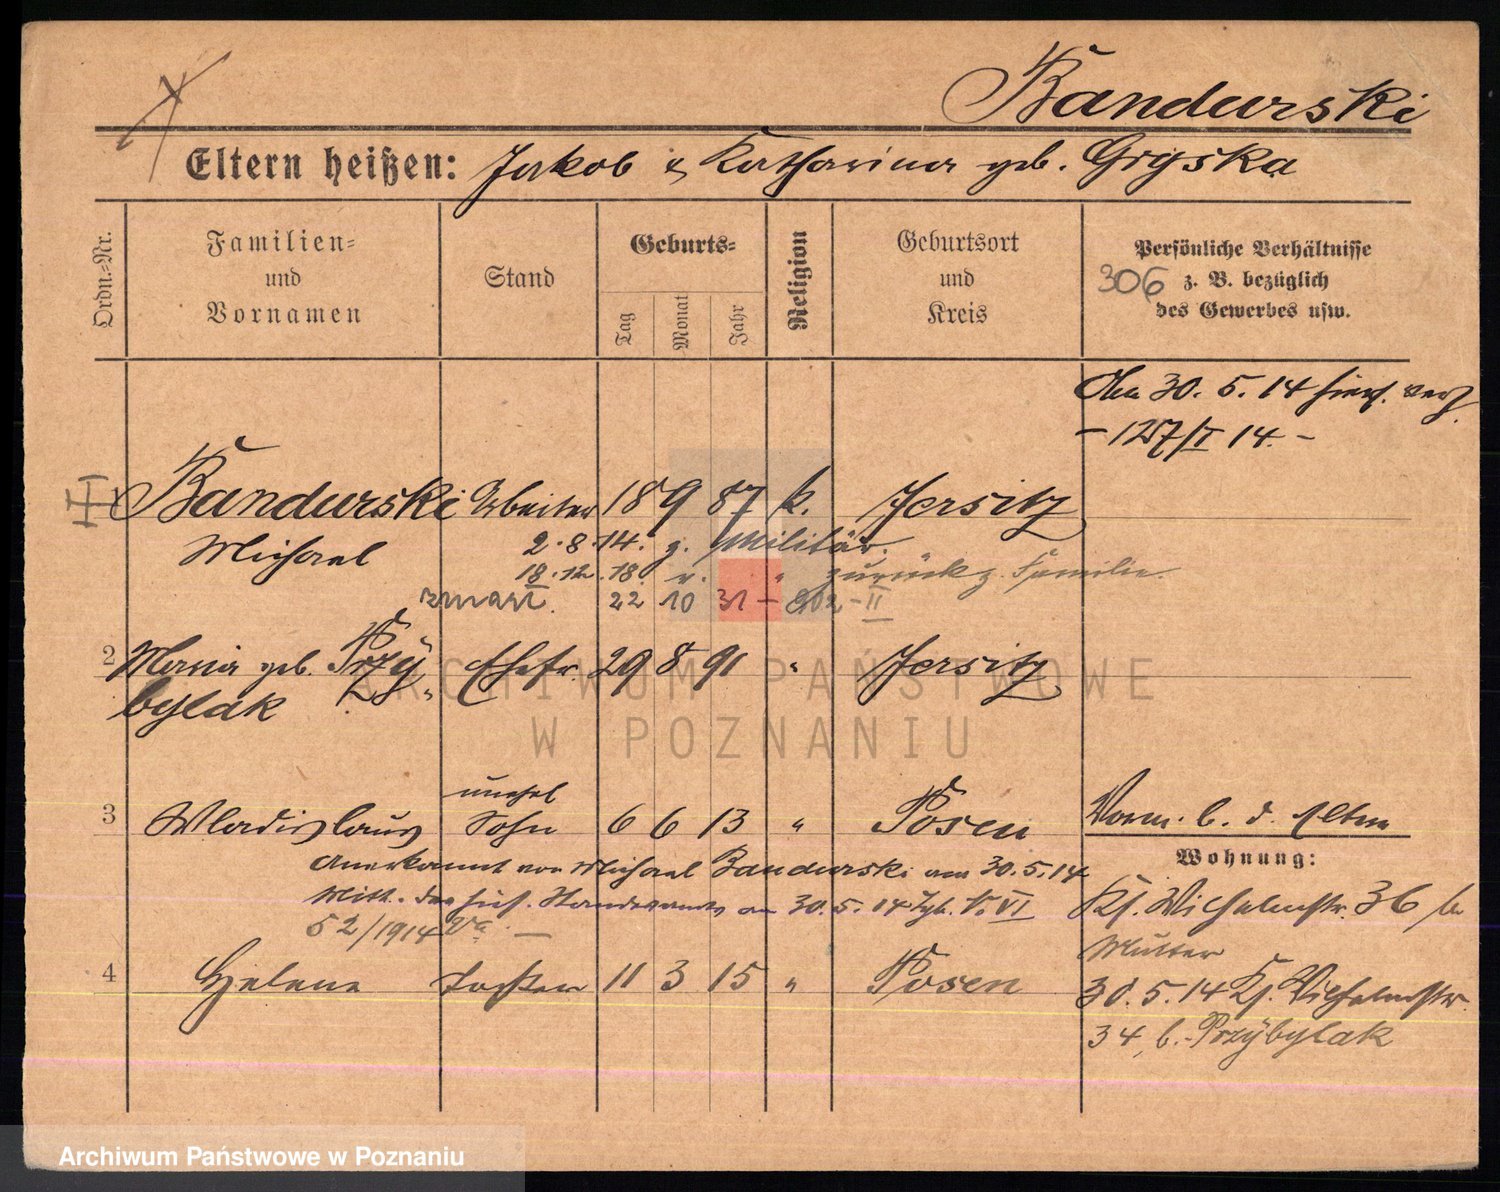 Bandurski
Eltern heißen: Jakob & Katharina geb. Gryska
Ordn.-Nr.
Familien-
und
Vornamen
Stand
Geburts-
Tag
Monat
Jahr
Religion
Geburtsort
und
Kreis
Persönliche Verhältnisse
306 z. B. bezüglich
des Gewerbes usw.
Am 30. 5. 14 hier
14. –
1 Bandurski Arbeiter 18 9 87 k. Jersitz
Michael 2.8.14. z. Militär.
18.12.18. v. " zurück z. Familie.
zmarł. 22 10 31 –
2 Maria geb. Przy Ehefr. 29 8 91 " Jersitz
bylak
unehel
3 Wladislaus Sohn 6 6 13 " Posen Vorm. b. d. Eltern
Anerkannt von Michael Bandurski am 30.5.14
Mitt. des hies. Standesamts 30.5.14 VI
52/1914
Wohnung:
Kl. Wilhelmstr. 36 b.
Mutter
4 Helene Tochter 11 3 15 " Posen
30.5.14 Kl. Wilhelmstr.
34, b. Przybylak
ARCHIWUM PAŃSTWOWE
W POZNANIU
Archiwum Państwowe w Poznaniu